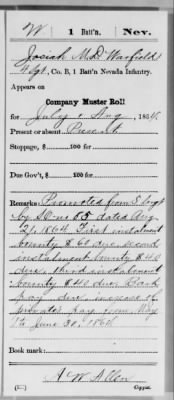 W | 1 Batt'n. | Nev.
Josiah M. D. Warfield
4 Sgt, Co. B, 1 Batt'n Nevada Infantry.
Appears on
Company Muster Roll
for July & Aug, 1864.
Present or absent Present
Stoppage, $ 100 for
Due Gov't, $ 100 for
Remarks: Promoted from 5 Sergt
by S.O. No 85 dated Aug
21, 1864. First instalment
bounty $60 due, second
instalment bounty $40
due, third instalment
bounty $40 due. Back
pay due increase of
private's pay from May
1 to June 30, 1864.
Book mark:
A W Allen
Copyist.